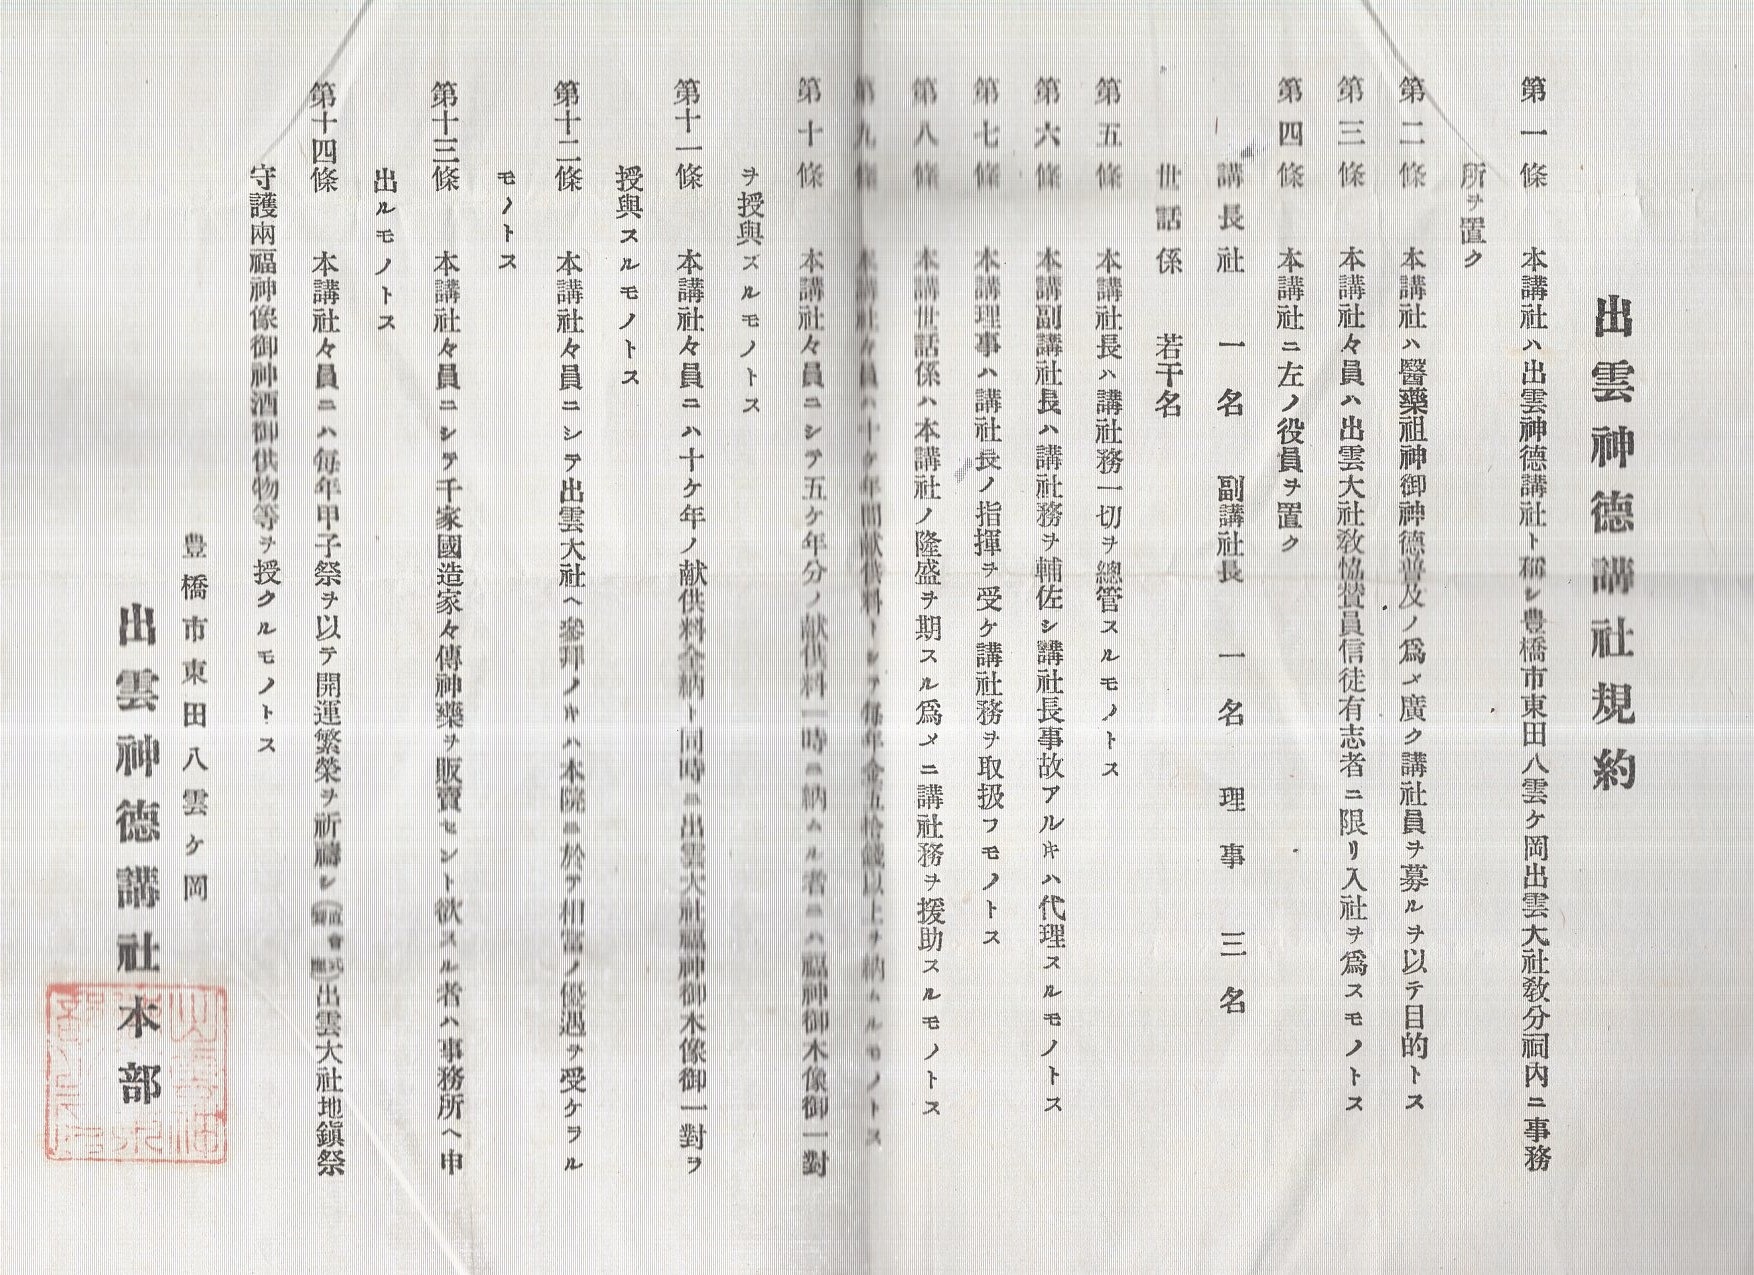 出雲神德講社規約
第一條　本講社ハ出雲神德講社ト稱シ豊橋市東田八雲ケ岡出雲大社敎分祠内ニ事務
所ヲ置ク
第二條　本講社ハ醫藥祖神御神德普及ノ爲メ廣ク講社員ヲ募ルヲ以テ目的トス
第三條　本講社々員ハ出雲大社敎恊贊員信徒有志者ニ限リ入社ヲ爲スモノトス
第四條　本講社ニ左ノ役員ヲ置ク
講長社　一名　副講社長　一名　理事　三名
世話係　若干名
第五條　本講社長ハ講社務一切ヲ總管スルモノトス
第六條　本講副講社長ハ講社務ヲ輔佐シ講社長事故アルキハ代理スルモノトス
第七條　本講理事ハ講社長ノ指揮ヲ受ケ講社務ヲ取扱フモノトス
第八條　本講世話係ハ本講社ノ隆盛ヲ期スル爲メニ講社務ヲ援助スルモノトス
第九條　本講社々員ハ十ケ年間献供料トシテ每年金五拾錢以上ヲ納ムルモノトス
第十條　本講社々員ニシテ五ケ年分ノ献供料一時ニ納ムル者ニハ福神御木像御一對
ヲ授與ズルモノトス
第十一條　本講社々員ニハ十ケ年ノ献供料全納ト同時ニ出雲大社福神御木像御一對ヲ
授與スルモノトス
第十二條　本講社々員ニシテ出雲大社ヘ參拜ノキハ本院ニ於テ相當ノ優遇ヲ受ケヲル
モノトス
第十三條　本講社々員ニシテ千家國造家々傳神藥ヲ販賣セント欲スル者ハ事務所ヘ申
出ルモノトス
第十四條　本講社々員ニハ每年甲子祭ヲ以テ開運繁榮ヲ祈禱シ出雲大社地鎭祭
守護兩福神像御神酒御供物等ヲ授クルモノトス
豊橋市東田八雲ケ岡
出雲神德講社本部